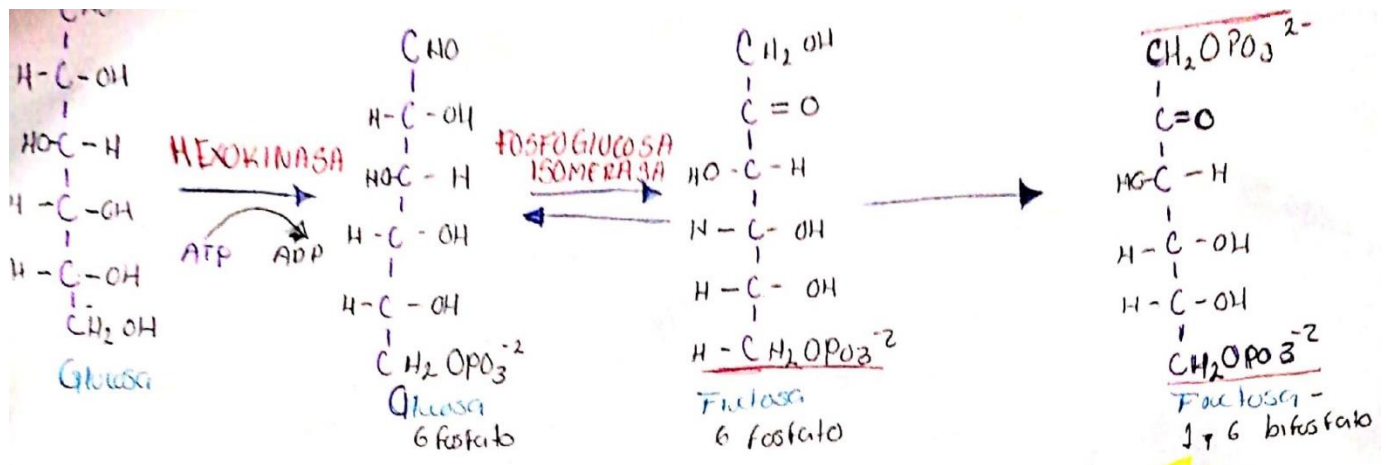 H-C-OH
HO-C-H
H-C-OH
H-C-OH
CH₂OH
Glucosa
HEXOKINASA
ATP ADP
CHO
H-C-OH
HO-C-H
H-C-OH
H-C-OH
CH₂OPO₃⁻²
Glucosa
6 fosfato
FOSFOGLUCOSA
ISOMERASA
CH₂OH
C=O
HO-C-H
H-C-OH
H-C-OH
H-CH₂OPO₃⁻²
Fructosa
6 fosfato
CH₂OPO₃²⁻
C=O
HO-C-H
H-C-OH
H-C-OH
CH₂OPO₃⁻²
Fructosa-
1 y 6 bifosfato